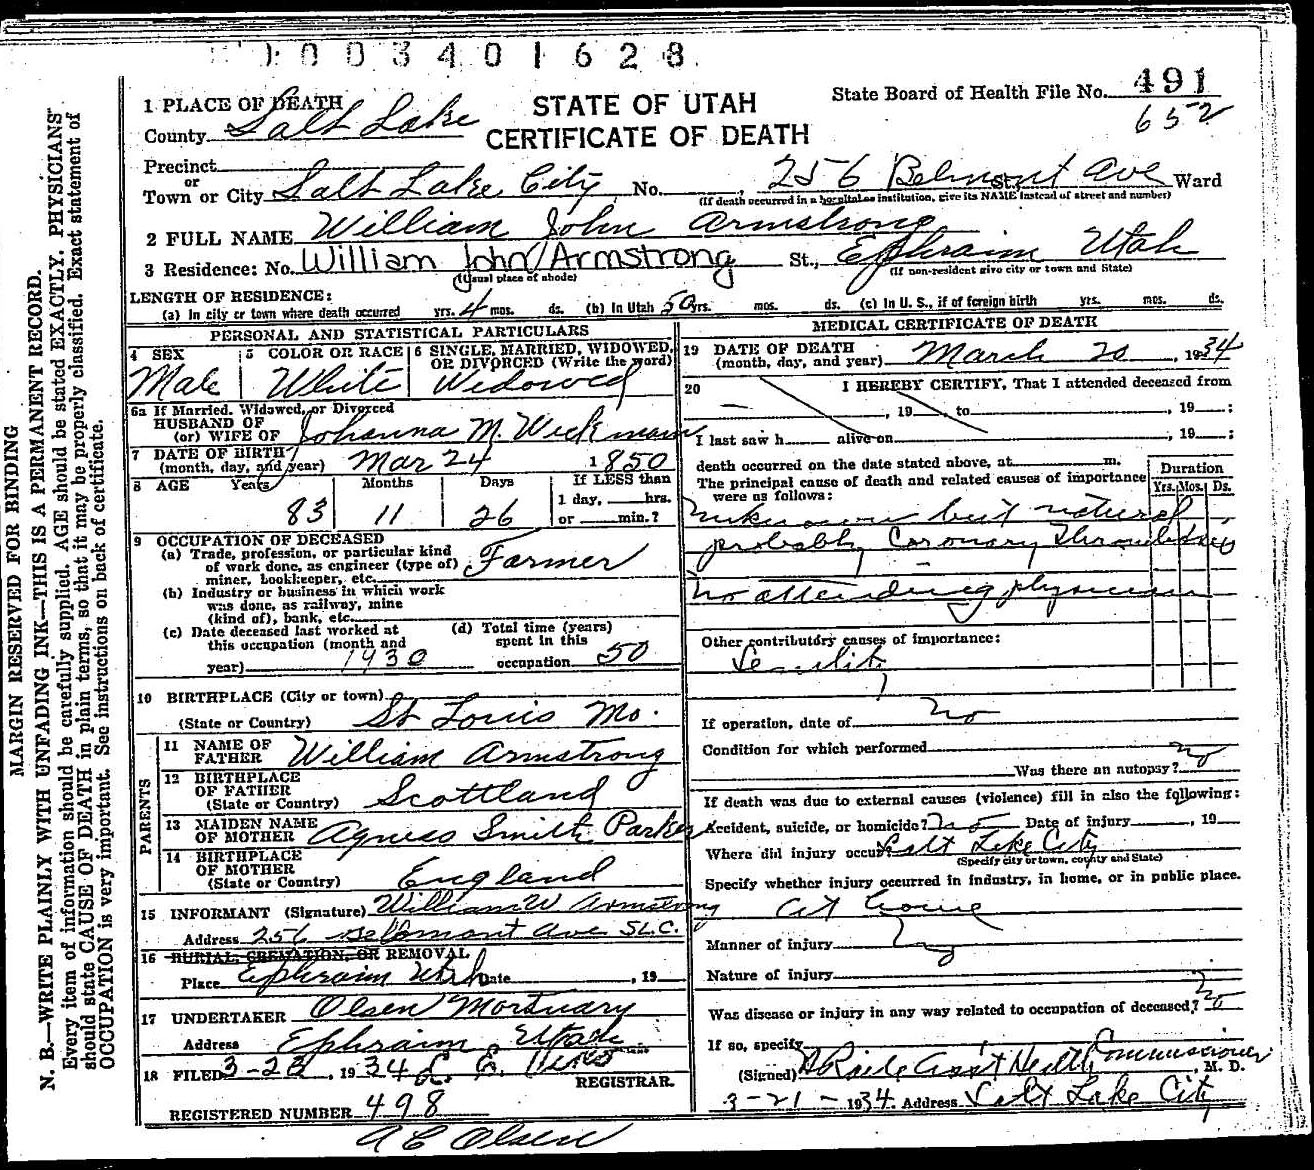 1003401628
1 PLACE OF DEATH
STATE OF UTAH
CERTIFICATE OF DEATH
State Board of Health File No. 491
652
County Salt Lake
Precinct
or
Town or City Salt Lake City No. , 256 Belmont Ave St., Ward
(If death occurred in a hospital or institution, give its NAME instead of street and number)
2 FULL NAME William John Armstrong
3 Residence: No. William John Armstrong St., Ephraim Utah
(Usual place of abode) (If non-resident give city or town and State)
LENGTH OF RESIDENCE:
(a) In city or town where death occurred yrs. 4 mos. ds. (b) In Utah 50 yrs. mos. ds. (c) In U. S., if of foreign birth yrs. mos. ds.
PERSONAL AND STATISTICAL PARTICULARS
4 SEX Male
5 COLOR OR RACE White
6 SINGLE, MARRIED, WIDOWED, OR DIVORCED (Write the word) Widowed
6a If Married, Widowed, or Divorced
HUSBAND OF
(or) WIFE OF Johanna M Wickmann
7 DATE OF BIRTH
(month, day, and year) Mar 24 1850
8 AGE Years Months Days If LESS than
1 day, hrs.
83 11 26 or min.?
9 OCCUPATION OF DECEASED
(a) Trade, profession, or particular kind
of work done, as engineer (type of) Farmer
miner, bookkeeper, etc.
(b) Industry or business in which work
was done, as railway, mine
(kind of), bank, etc.
(c) Date deceased last worked at
this occupation (month and
year) 1930
(d) Total time (years)
spent in this
occupation 50
10 BIRTHPLACE (City or town)
(State or Country) St Louis Mo.
PARENTS
11 NAME OF
FATHER William Armstrong
12 BIRTHPLACE
OF FATHER
(State or Country) Scottland
13 MAIDEN NAME
OF MOTHER Agness Smith Parker
14 BIRTHPLACE
OF MOTHER
(State or Country) England
15 INFORMANT (Signature) William W Armstrong
Address 256 Bellmont Ave S.L.C.
16 BURIAL, CREMATION, OR REMOVAL
Place Ephraim Utah Date , 19
17 UNDERTAKER Olsen Mortuary
Address Ephraim, Utah
18 FILED 3-23, 1934 L. E.
REGISTRAR.
REGISTERED NUMBER 498
A E Olsen
MEDICAL CERTIFICATE OF DEATH
19 DATE OF DEATH
(month, day, and year) March 20, 1934
20 I HEREBY CERTIFY, That I attended deceased from
, 19 , to , 19 :
I last saw h alive on , 19 :
death occurred on the date stated above, at m.
The principal cause of death and related causes of importance
were as follows:
Duration
Yrs. Mos. Ds.
Unknown but natural
probably Coronary Thrombosis
No attending physician
Other contributory causes of importance:
Senility
If operation, date of No
Condition for which performed
Was there an autopsy? no
If death was due to external causes (violence) fill in also the following:
Accident, suicide, or homicide? no Date of injury , 19
Where did injury occur? Salt Lake City
(Specify city or town, county and State)
Specify whether injury occurred in industry, in home, or in public place.
at home
Manner of injury
Nature of injury
Was disease or injury in any way related to occupation of deceased? No
If so, specify
(Signed) Asst Health Commissioner, M. D.
3-21-1934. Address Salt Lake City
MARGIN RESERVED FOR BINDING
N. B.—WRITE PLAINLY WITH UNFADING INK—THIS IS A PERMANENT RECORD.
Every item of information should be carefully supplied. AGE should be stated EXACTLY. PHYSICIANS
should state CAUSE OF DEATH in plain terms, so that it may be properly classified. Exact statement of
OCCUPATION is very important. See instructions on back of certificate.